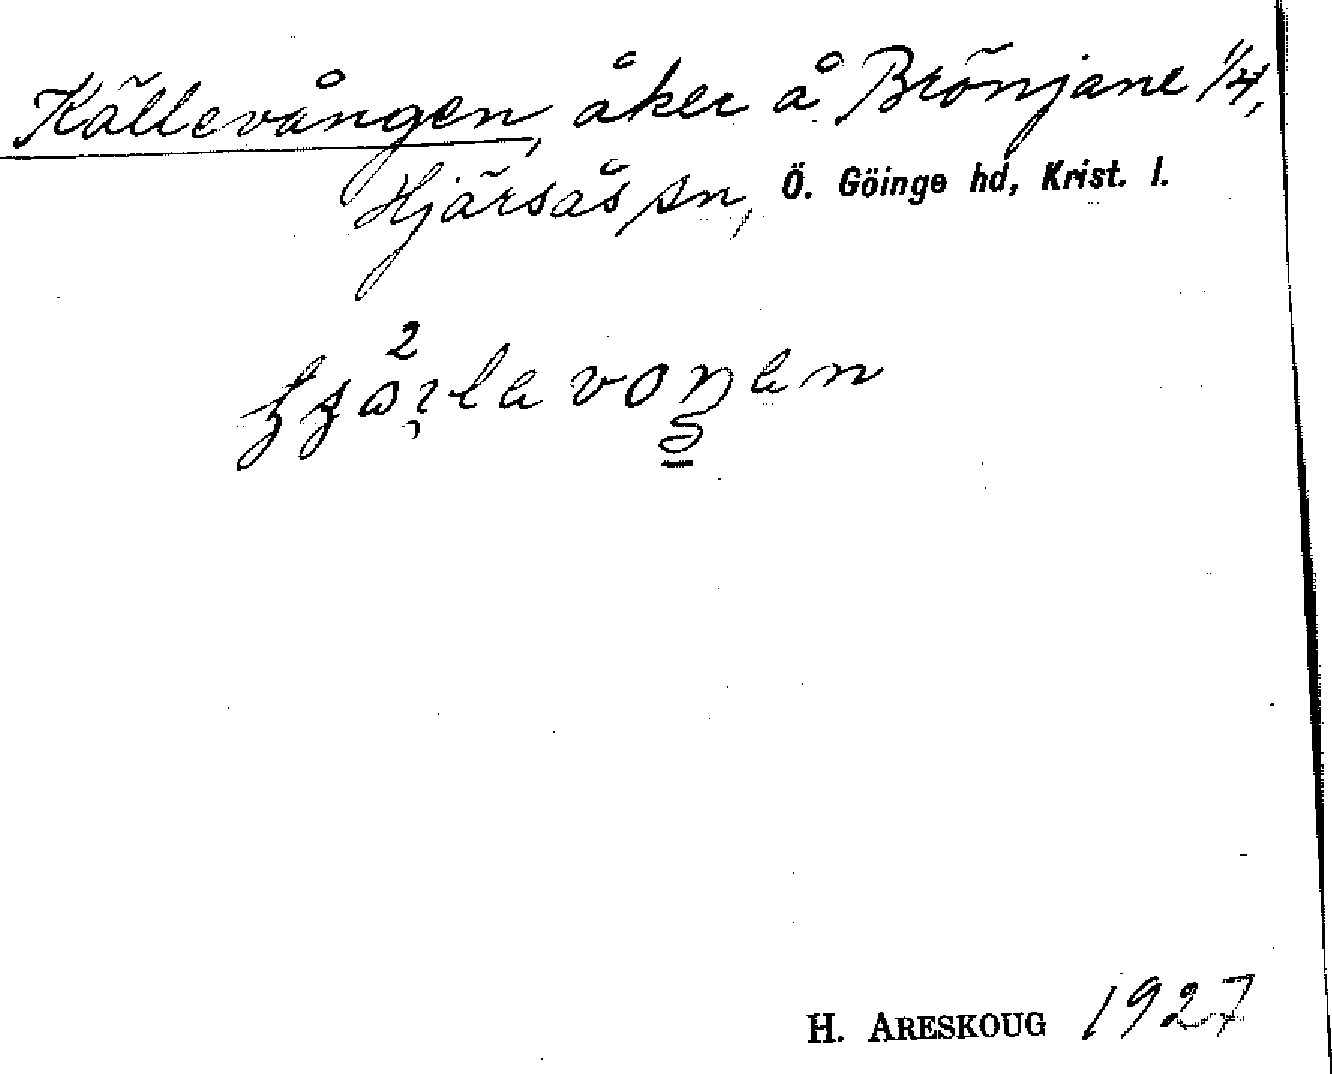 Källevången, åker å Brönjane 1/4,
Hjärsås sn, Ö. Göinge hd, Krist. l.
H. ARESKOUG 1927